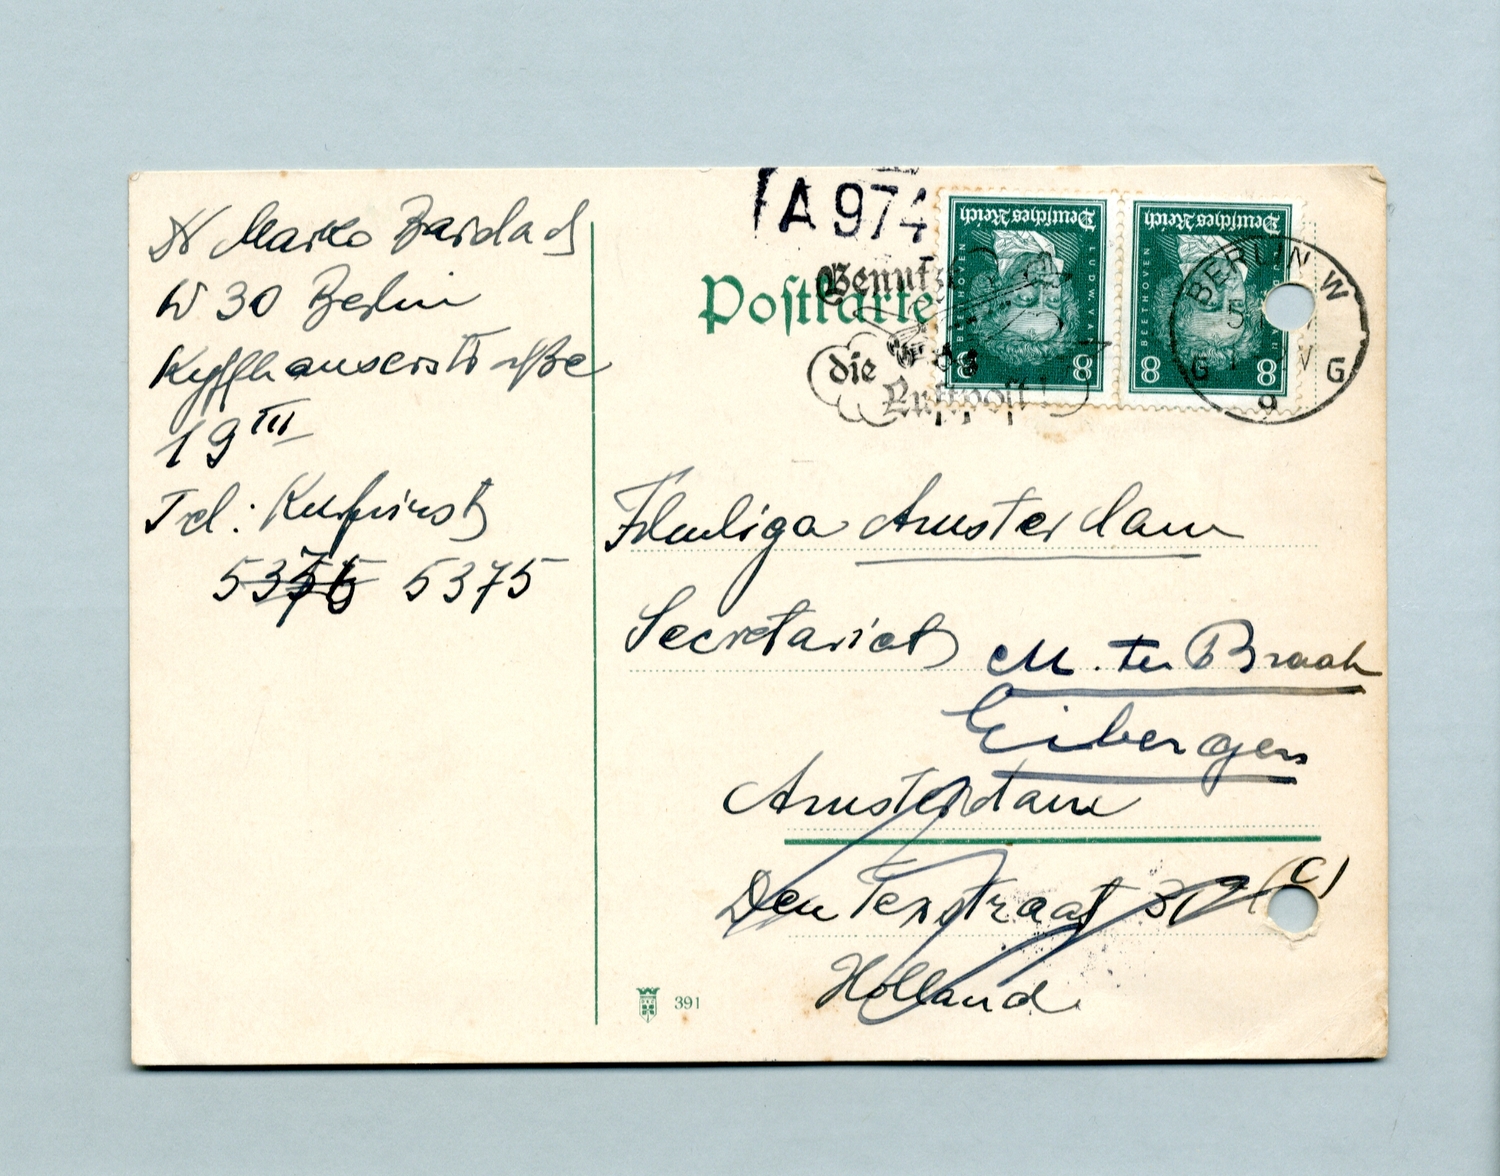 Dr Marko Bardach
W 30 Berlin
Kyffhauserstraße
19 III
Tel: Kurfürst
5375
A 974
Postkarte
Benutzt
die
Luftpost!
Deutsches Reich
LUDW. VAN
BEETHOVEN
8 8
Deutsches Reich
BEETHOVEN
8 8
BERLIN W
5
G G
9
Filmliga Amsterdam
Secretariat M. ter Braak
Eibergen
Amsterdam
Den Texstraat
Holland
391